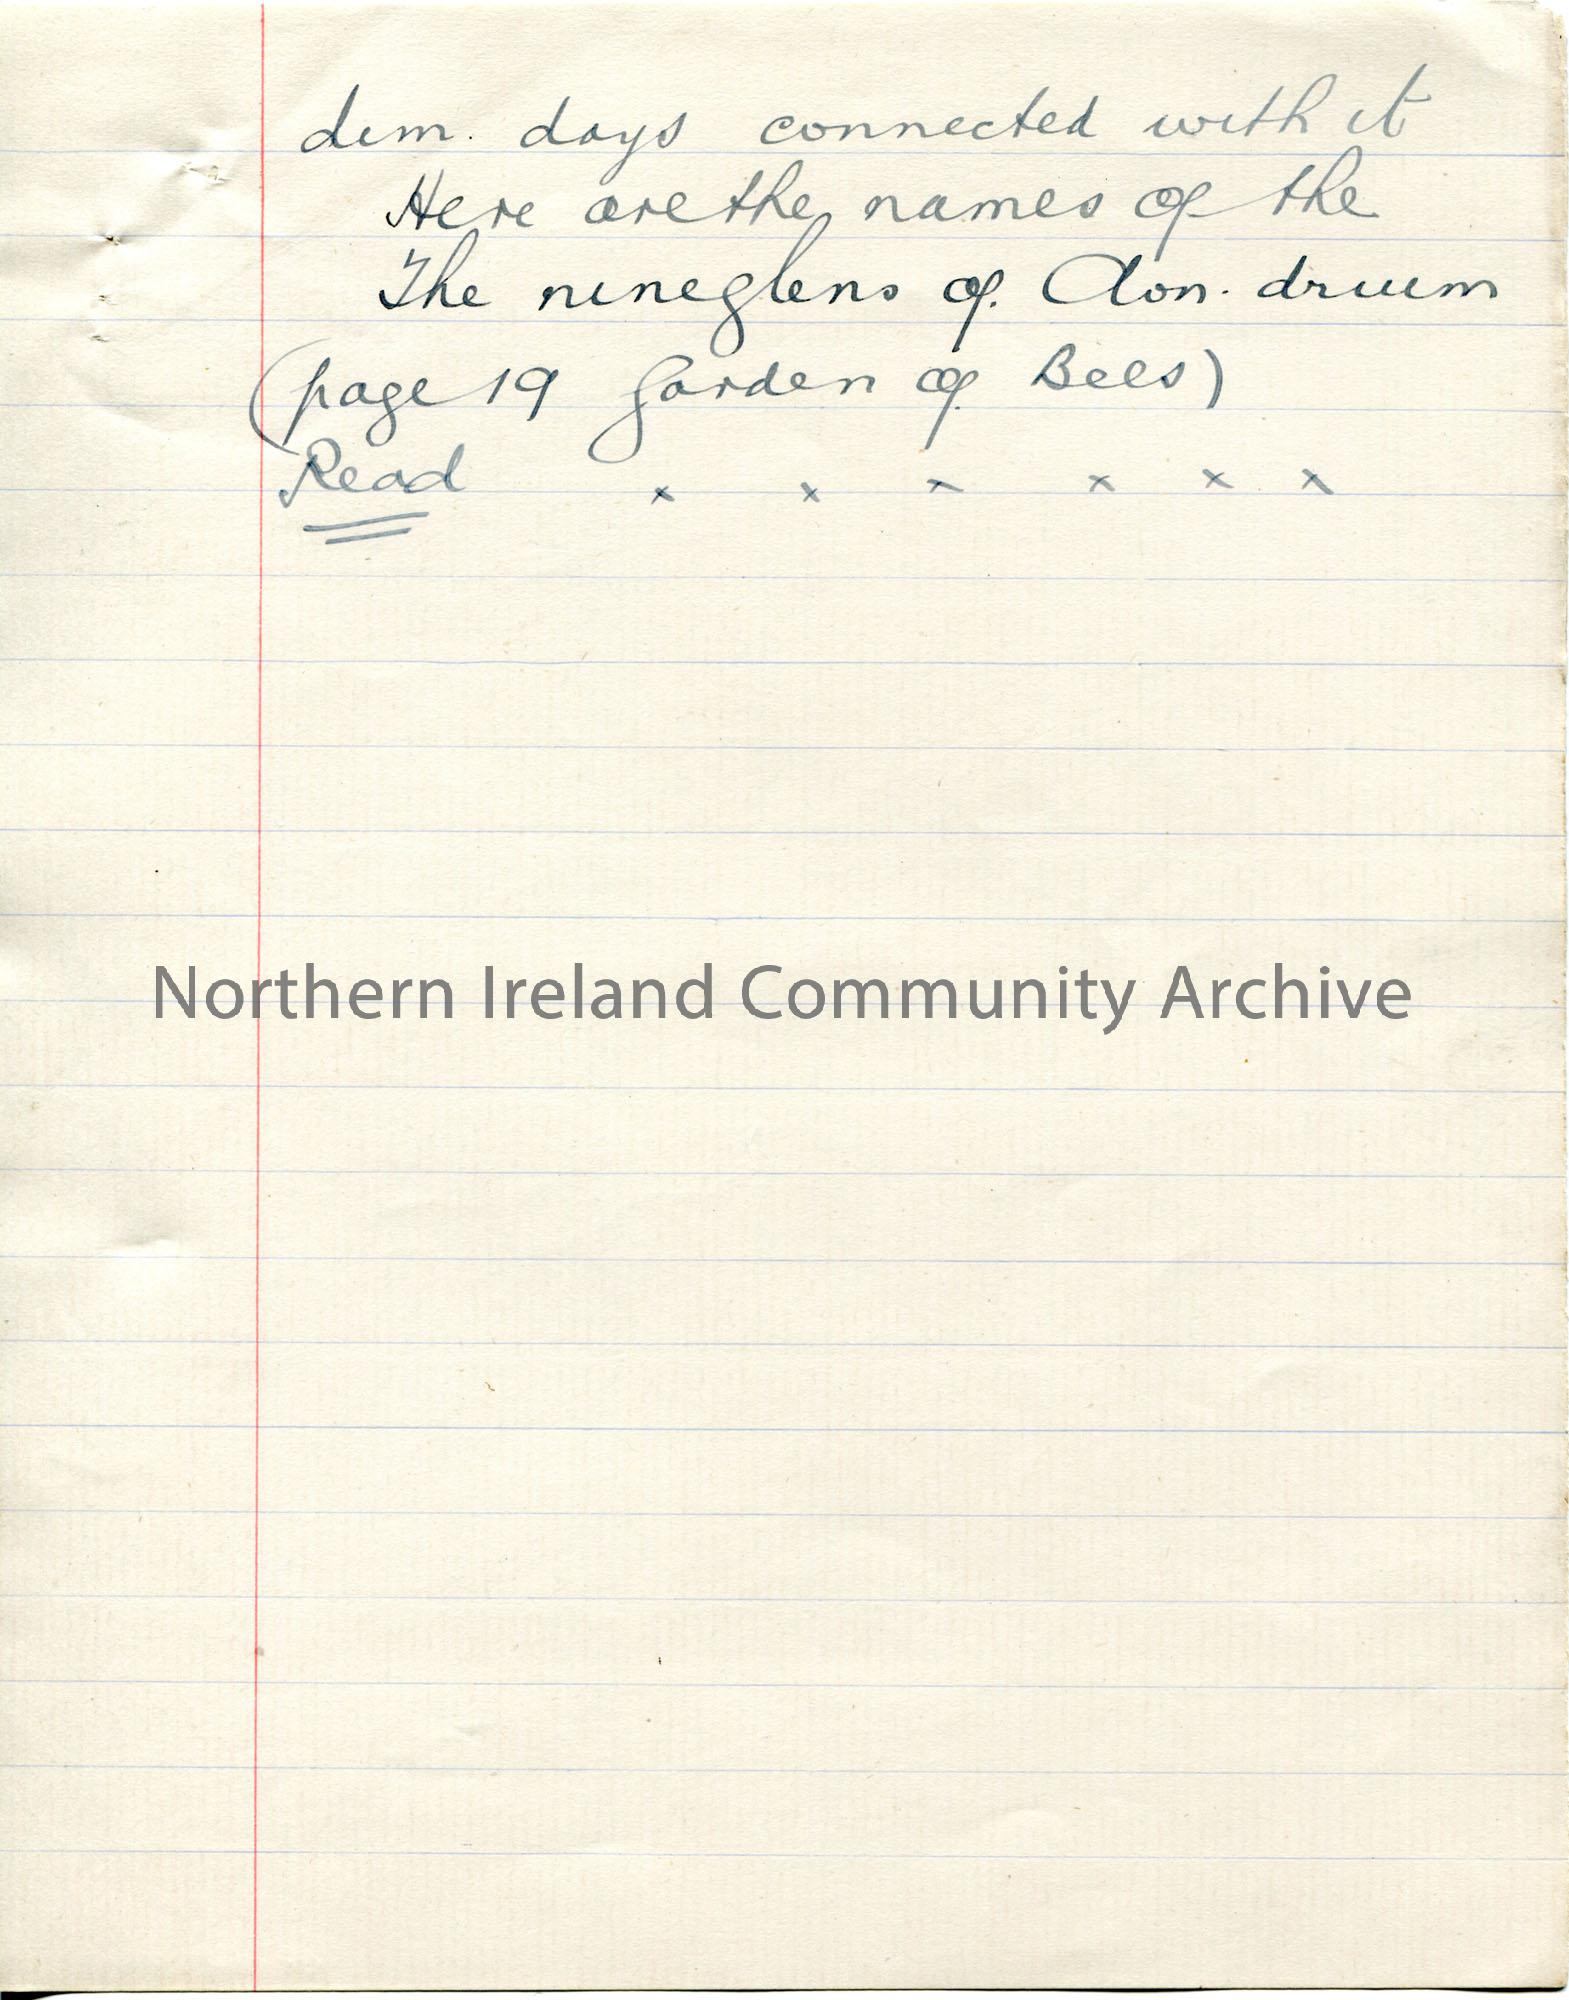 dim. days connected with it
Here are the names of the
The nine glens of. Clon. druim
(page 19 Garden of Bees)
Read x x x x x x
Northern Ireland Community Archive